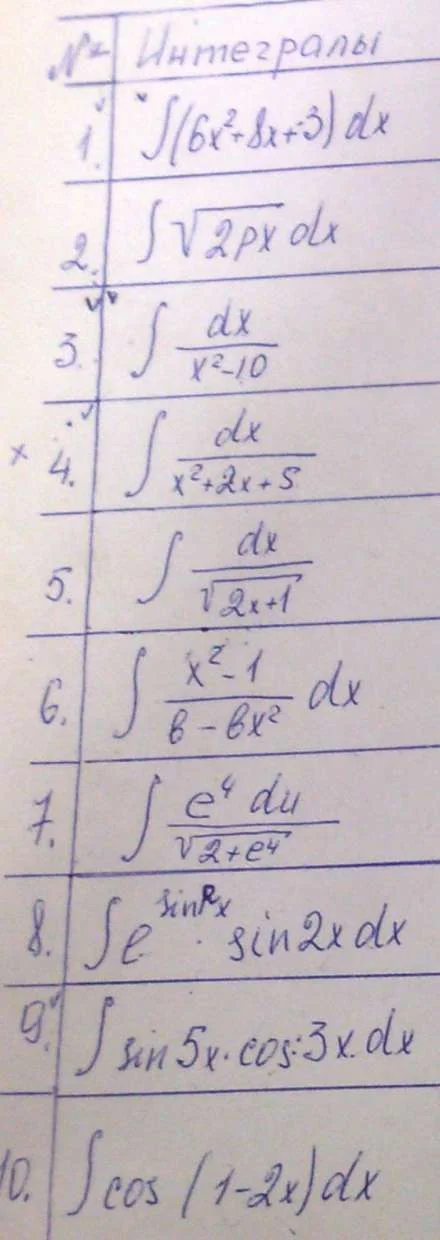 № Интегралы
1. ∫(6x²+8x+3) dx
2. ∫ √2px dx
3. ∫ dx / x²-10
4. ∫ dx / x²+2x+5
5. ∫ dx / √2x+1
6. ∫ x²-1 / 6-6x² dx
7. ∫ e⁴ du / √2+e⁴
8. ∫ e^sin²x · sin2x dx
9. ∫ sin5x · cos3x dx
10. ∫ cos (1-2x) dx